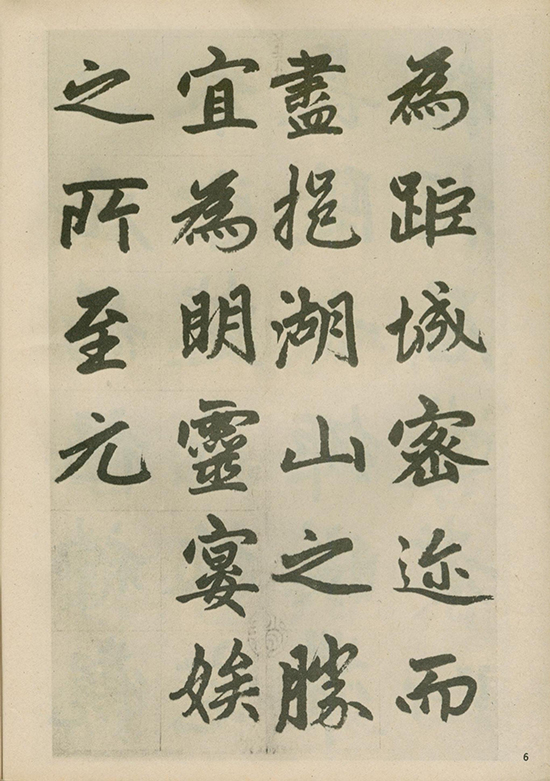 為距城密迩而
盡挹湖山之勝
宜為明靈宴娭
之所至元
6